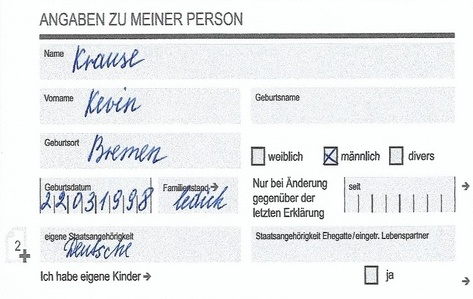 ANGABEN ZU MEINER PERSON
Name Krause
Vorname Kevin
Geburtsname
Geburtsort Bremen
weiblich männlich divers
Geburtsdatum 22031998
Familienstand → ledich
Nur bei Änderung
gegenüber der
letzten Erklärung
seit →
2
eigene Staatsangehörigkeit Deutsche
Staatsangehörigkeit Ehegatte/eingetr. Lebenspartner
Ich habe eigene Kinder → ja →